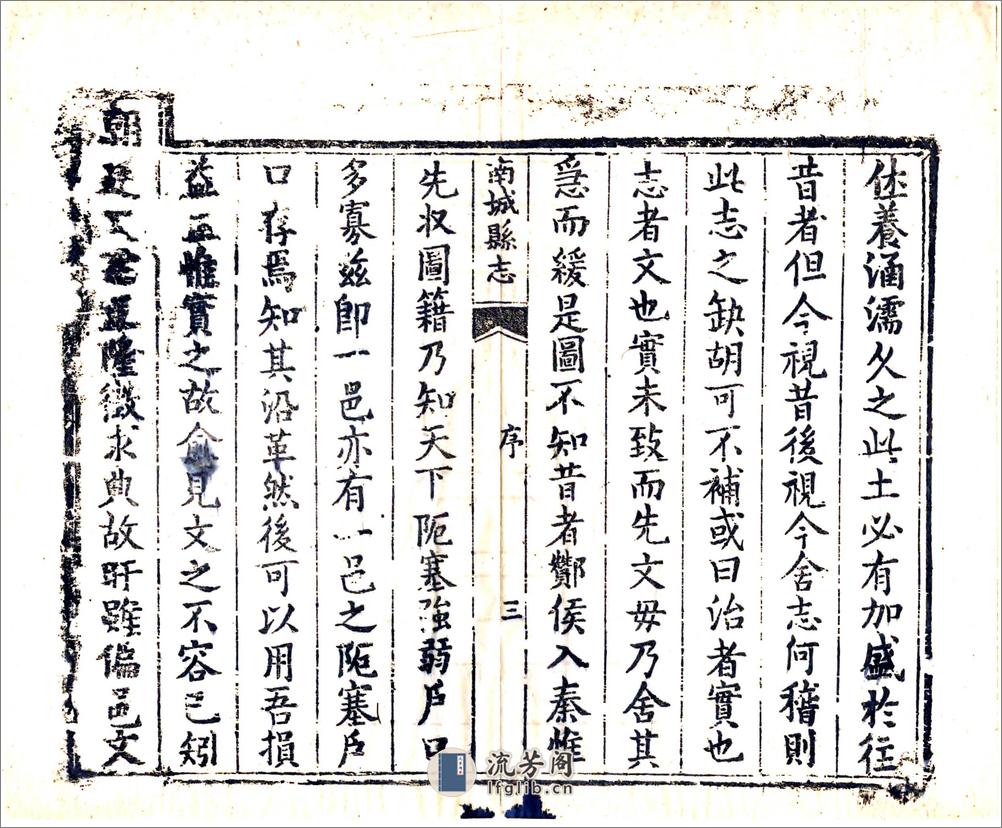 休養涵濡久之此土必有加盛於往
昔者但今視昔後視今舍志何稽則
此志之缺胡可不補或曰治者實也
志者文也實未致而先文毋乃舍其
急而緩是圖不知昔者酇侯入秦惟
南城縣志 序 三
先收圖籍乃知天下阨塞強弱戶口
多寡兹卽一邑亦有一邑之阨塞戶
口存焉知其沿革然後可以用吾損
益正惟實之故僉見文之不容已矧
朝廷 隆徵求典故盱雖偏邑文
流芳阁
lfglib.cn